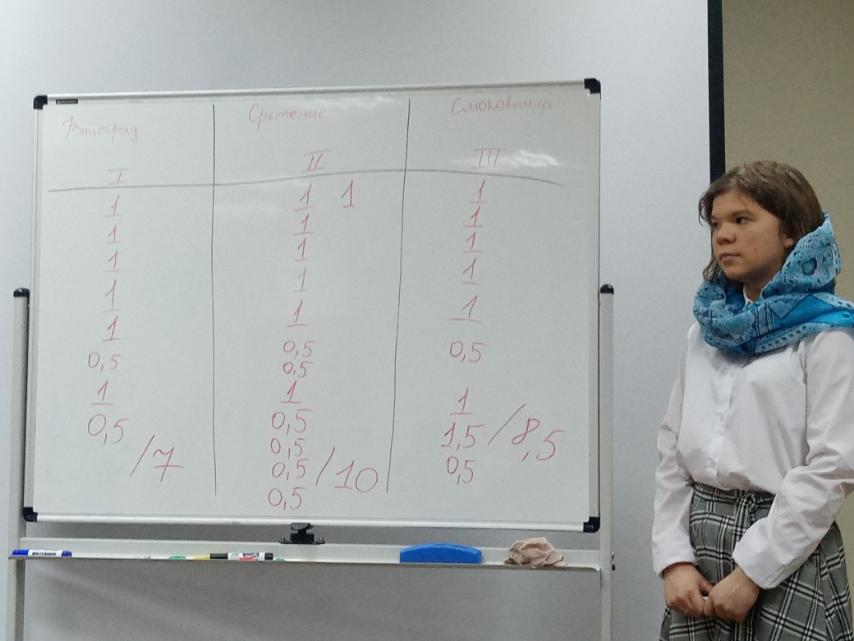 Виноград
I
1
1
1
1
1
0,5
1
0,5
/7
Сретение
II
1 1
1
1
1
1
0,5
0,5
1
0,5
0,5
0,5 /10
0,5
Смоковница
III
1
1
1
1
1
0,5
1
1,5 /8,5
0,5